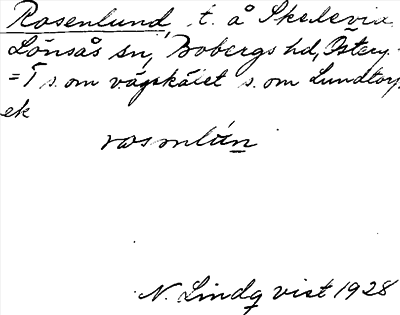 Rosenlund, t. å Skedevia
Lönsås sn, Bobergs hd, Österg.
= T s. om vägskälet s. om Lundtorp.
ek
rosenlún
N. Lindqvist 1928